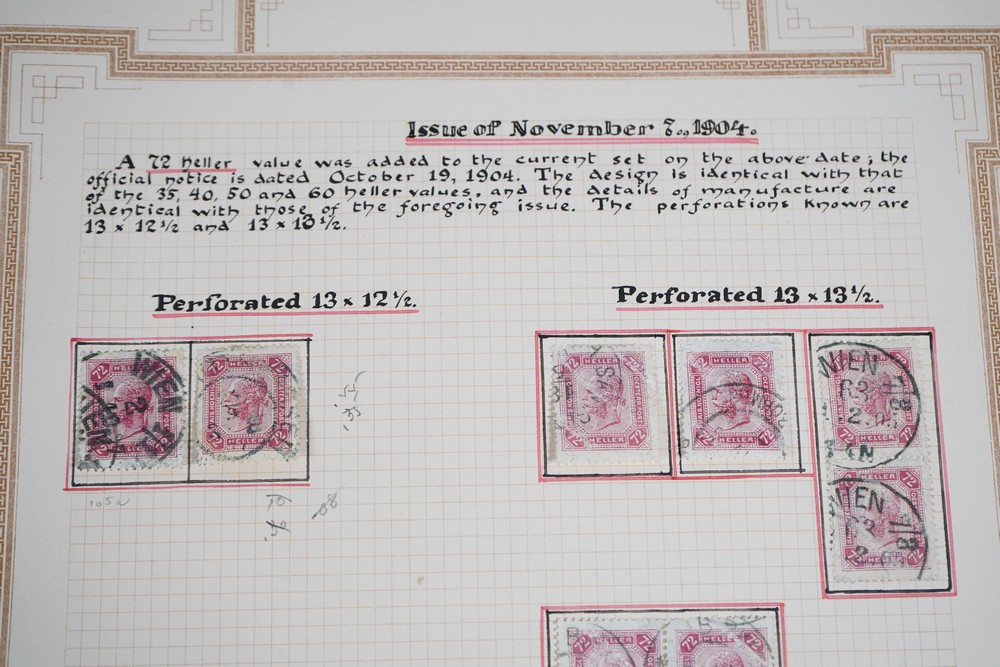 Issue of November 7., 1904.
A 72 heller value was added to the current set on the above date; the
official notice is dated October 19, 1904. The design is identical with that
of the 35, 40, 50 and 60 heller values, and the details of manufacture are
identical with those of the foregoing issue. The perforations known are
13 x 12 ½ and 13 x 13 ½.
Perforated 13 x 12 ½.
Perforated 13 x 13 ½.
72 HELLER 72
WIEN
72 HELLER 72
72 HELLER 72
72 HELLER 72
WIEN
72 HELLER 72
WIEN
72 HELLER 72
72 HELLER 72